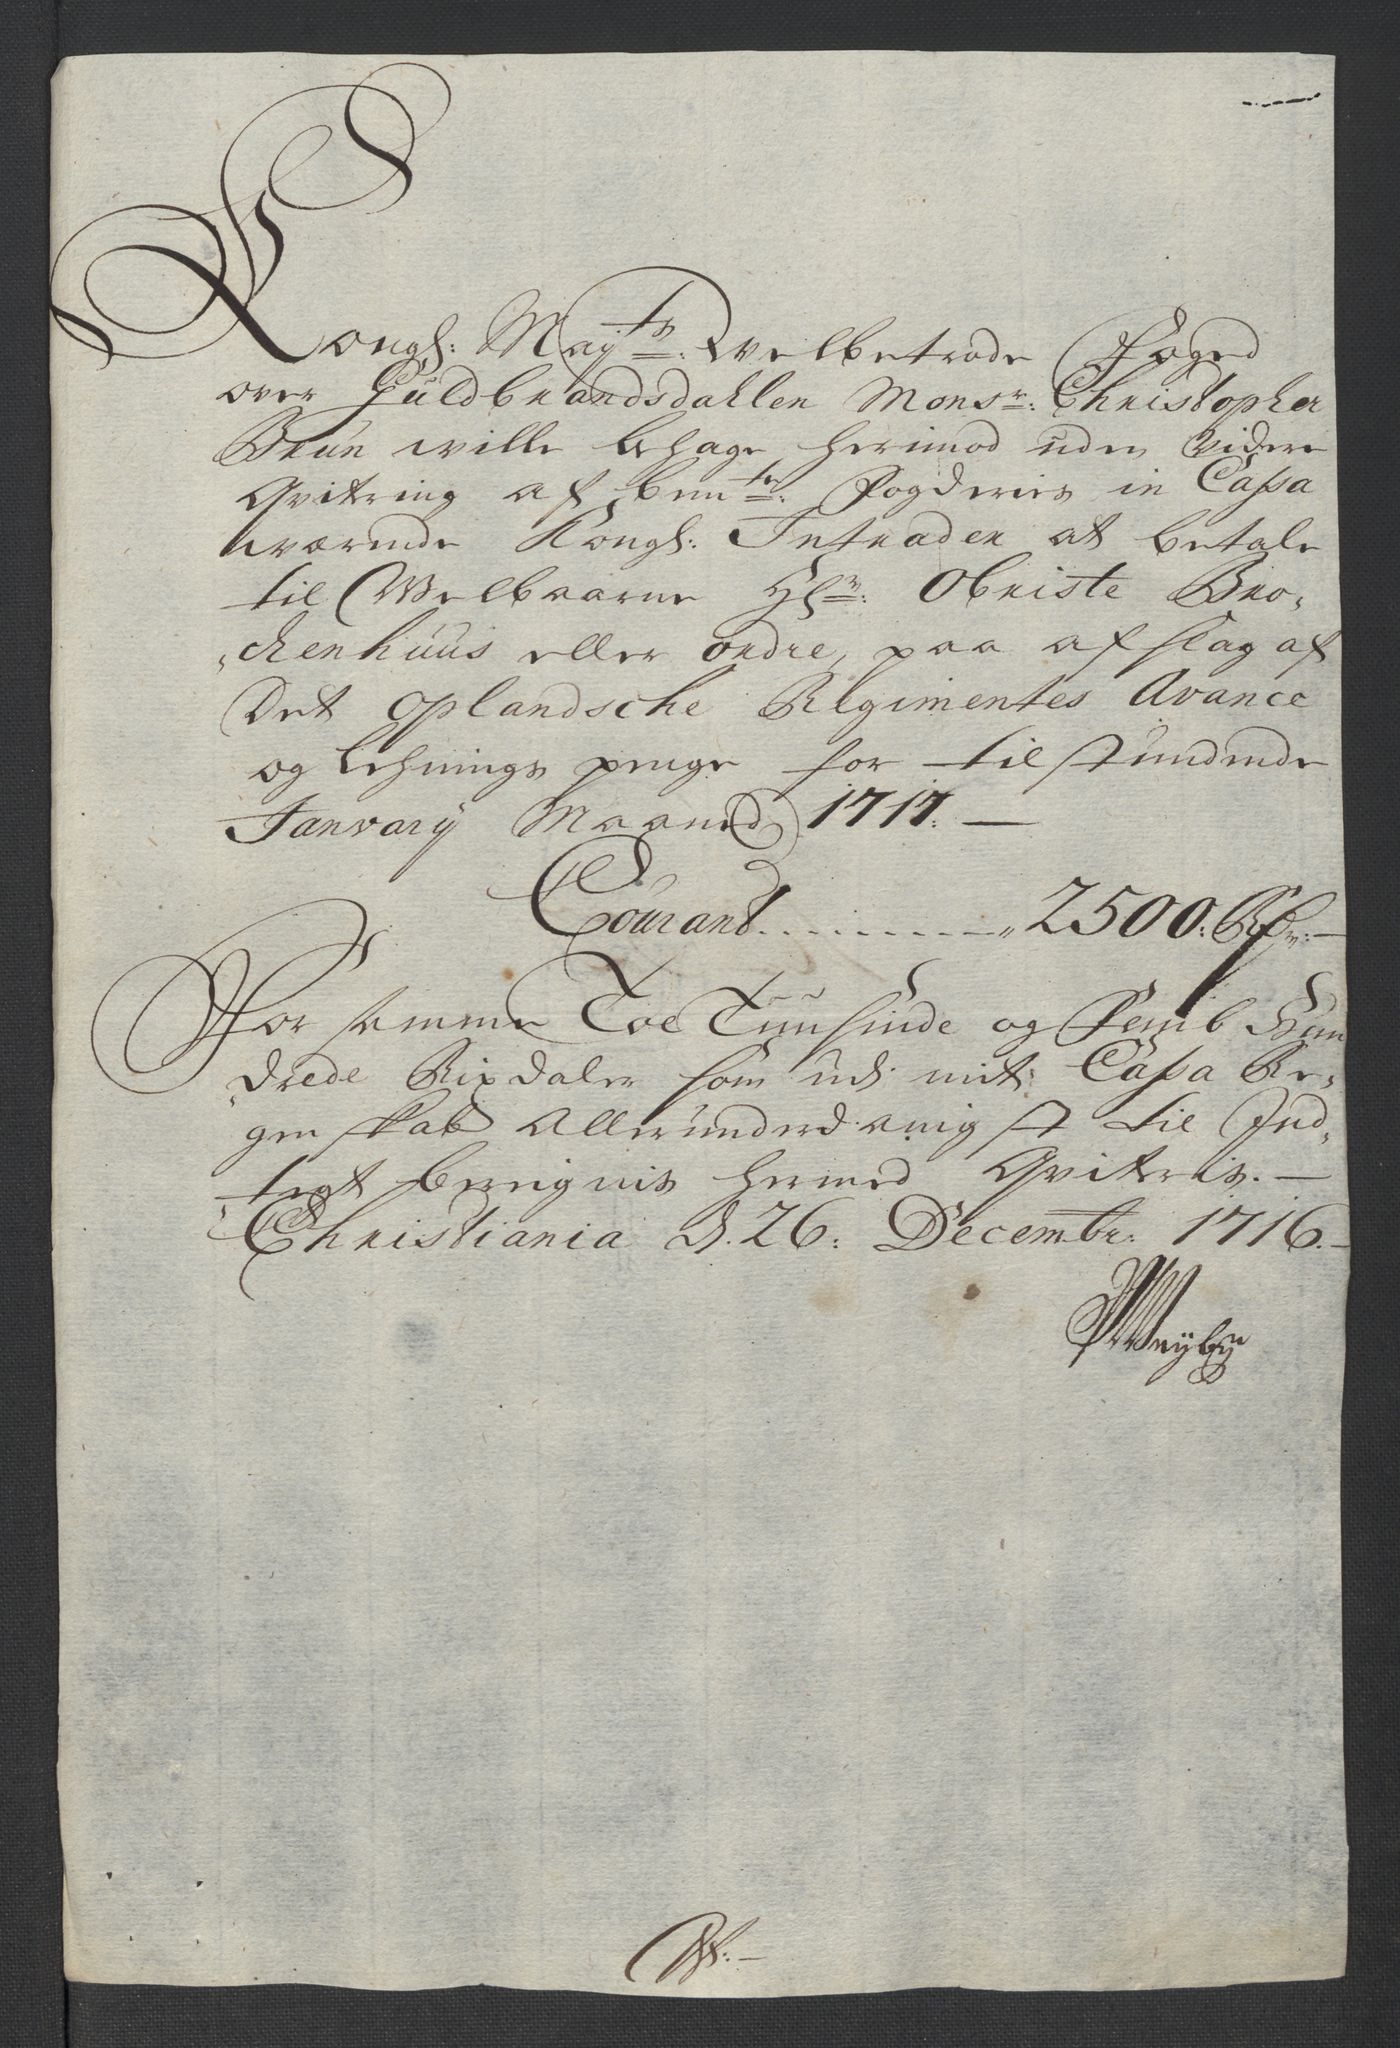 Kongl: May:ts Welbetrode Foged
over Guldbrandsdahlen Monsr: Christopher
Brun wille behage herimod uden Videre
Qvitring af bemte: Fogderies in Cassa
værende Kongl: Intrader at betale
til Welbaarne Hr: Obriste Bro-
ckenhuus eller ordre, paa afslag af
Det Oplandsche Regimentes Avance
og Lehnings penge for tilstundende
Janvary Maaned 1717. —
Courant .......... 2500: Rdr: —
For samme Toe Tuusinde og Femb Hun
drede Rixdaler som udj mit Cassa Re-
genskab Allerunderdanigst til Ind-
tegt beregnis hermed Qvitteris. —
Christiania d. 26: Decembr: 1716. —